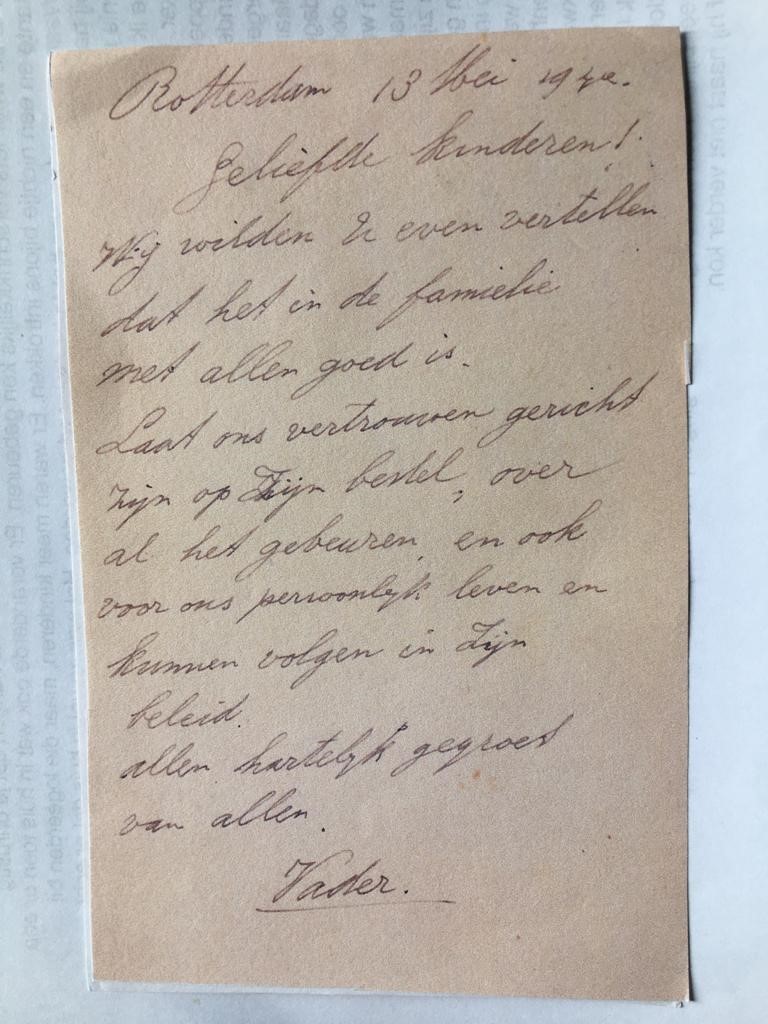 Rotterdam 13 Mei 1940.
Geliefde kinderen!
Wij wilden U even vertellen
dat het in de famielie
met allen goed is.
Laat ons vertrouwen gericht
zijn op Zijn bestel, over
al het gebeuren, en ook
voor ons persoonlijk leven en
kunnen volgen in Zijn
beleid.
allen hartelijk gegroet
van allen.
Vader.